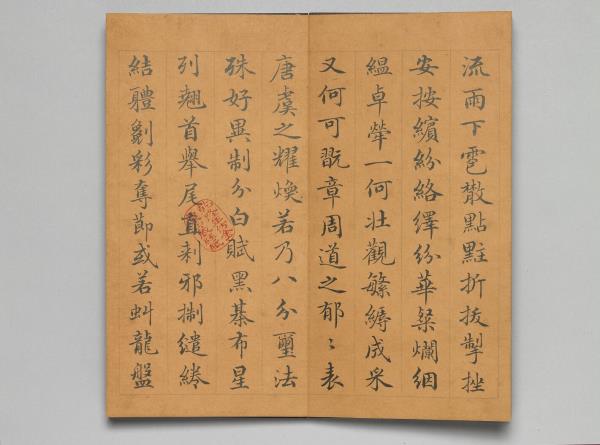 流雨下雹散點折拔掣挫
安按繽紛絡繹紛華粲爛絪
縕卓犖一何壯觀繁縟成采
又何可翫章周道之郁〻表
唐虞之耀煥若乃八分璽法
殊好異制分白賦黑棊布星
列翹首舉尾直刺邪繾綣
結體劖彩奪節或若虯龍盤